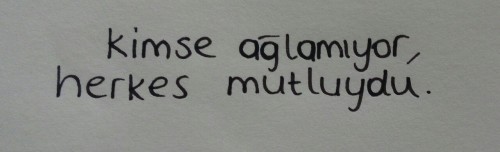 kimse ağlamıyor,
herkes mutluydu.